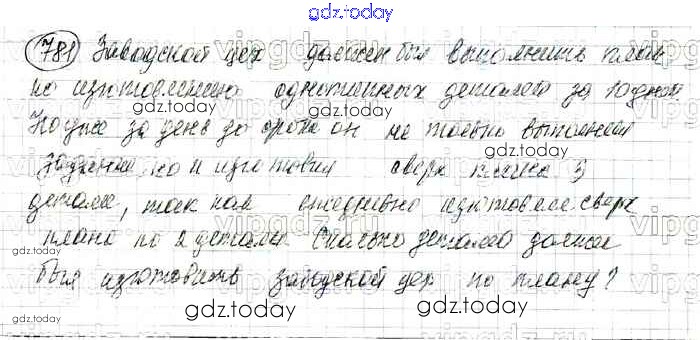 gdz.today
781 Заводской цех должен был выполнить план
по изготовлению однотипных деталей за 10 дней.
gdz.today
Но уже за день до срока он не только выполнил
gdz.today
задание, но и изготовил сверх плана 3
gdz.today
детали, так как ежедневно изготовлял сверх
vipgdz.ru
плана по 2 детали. Сколько деталей должен
gdz.today
был изготовить заводской цех по плану?
gdz.today
gdz.today